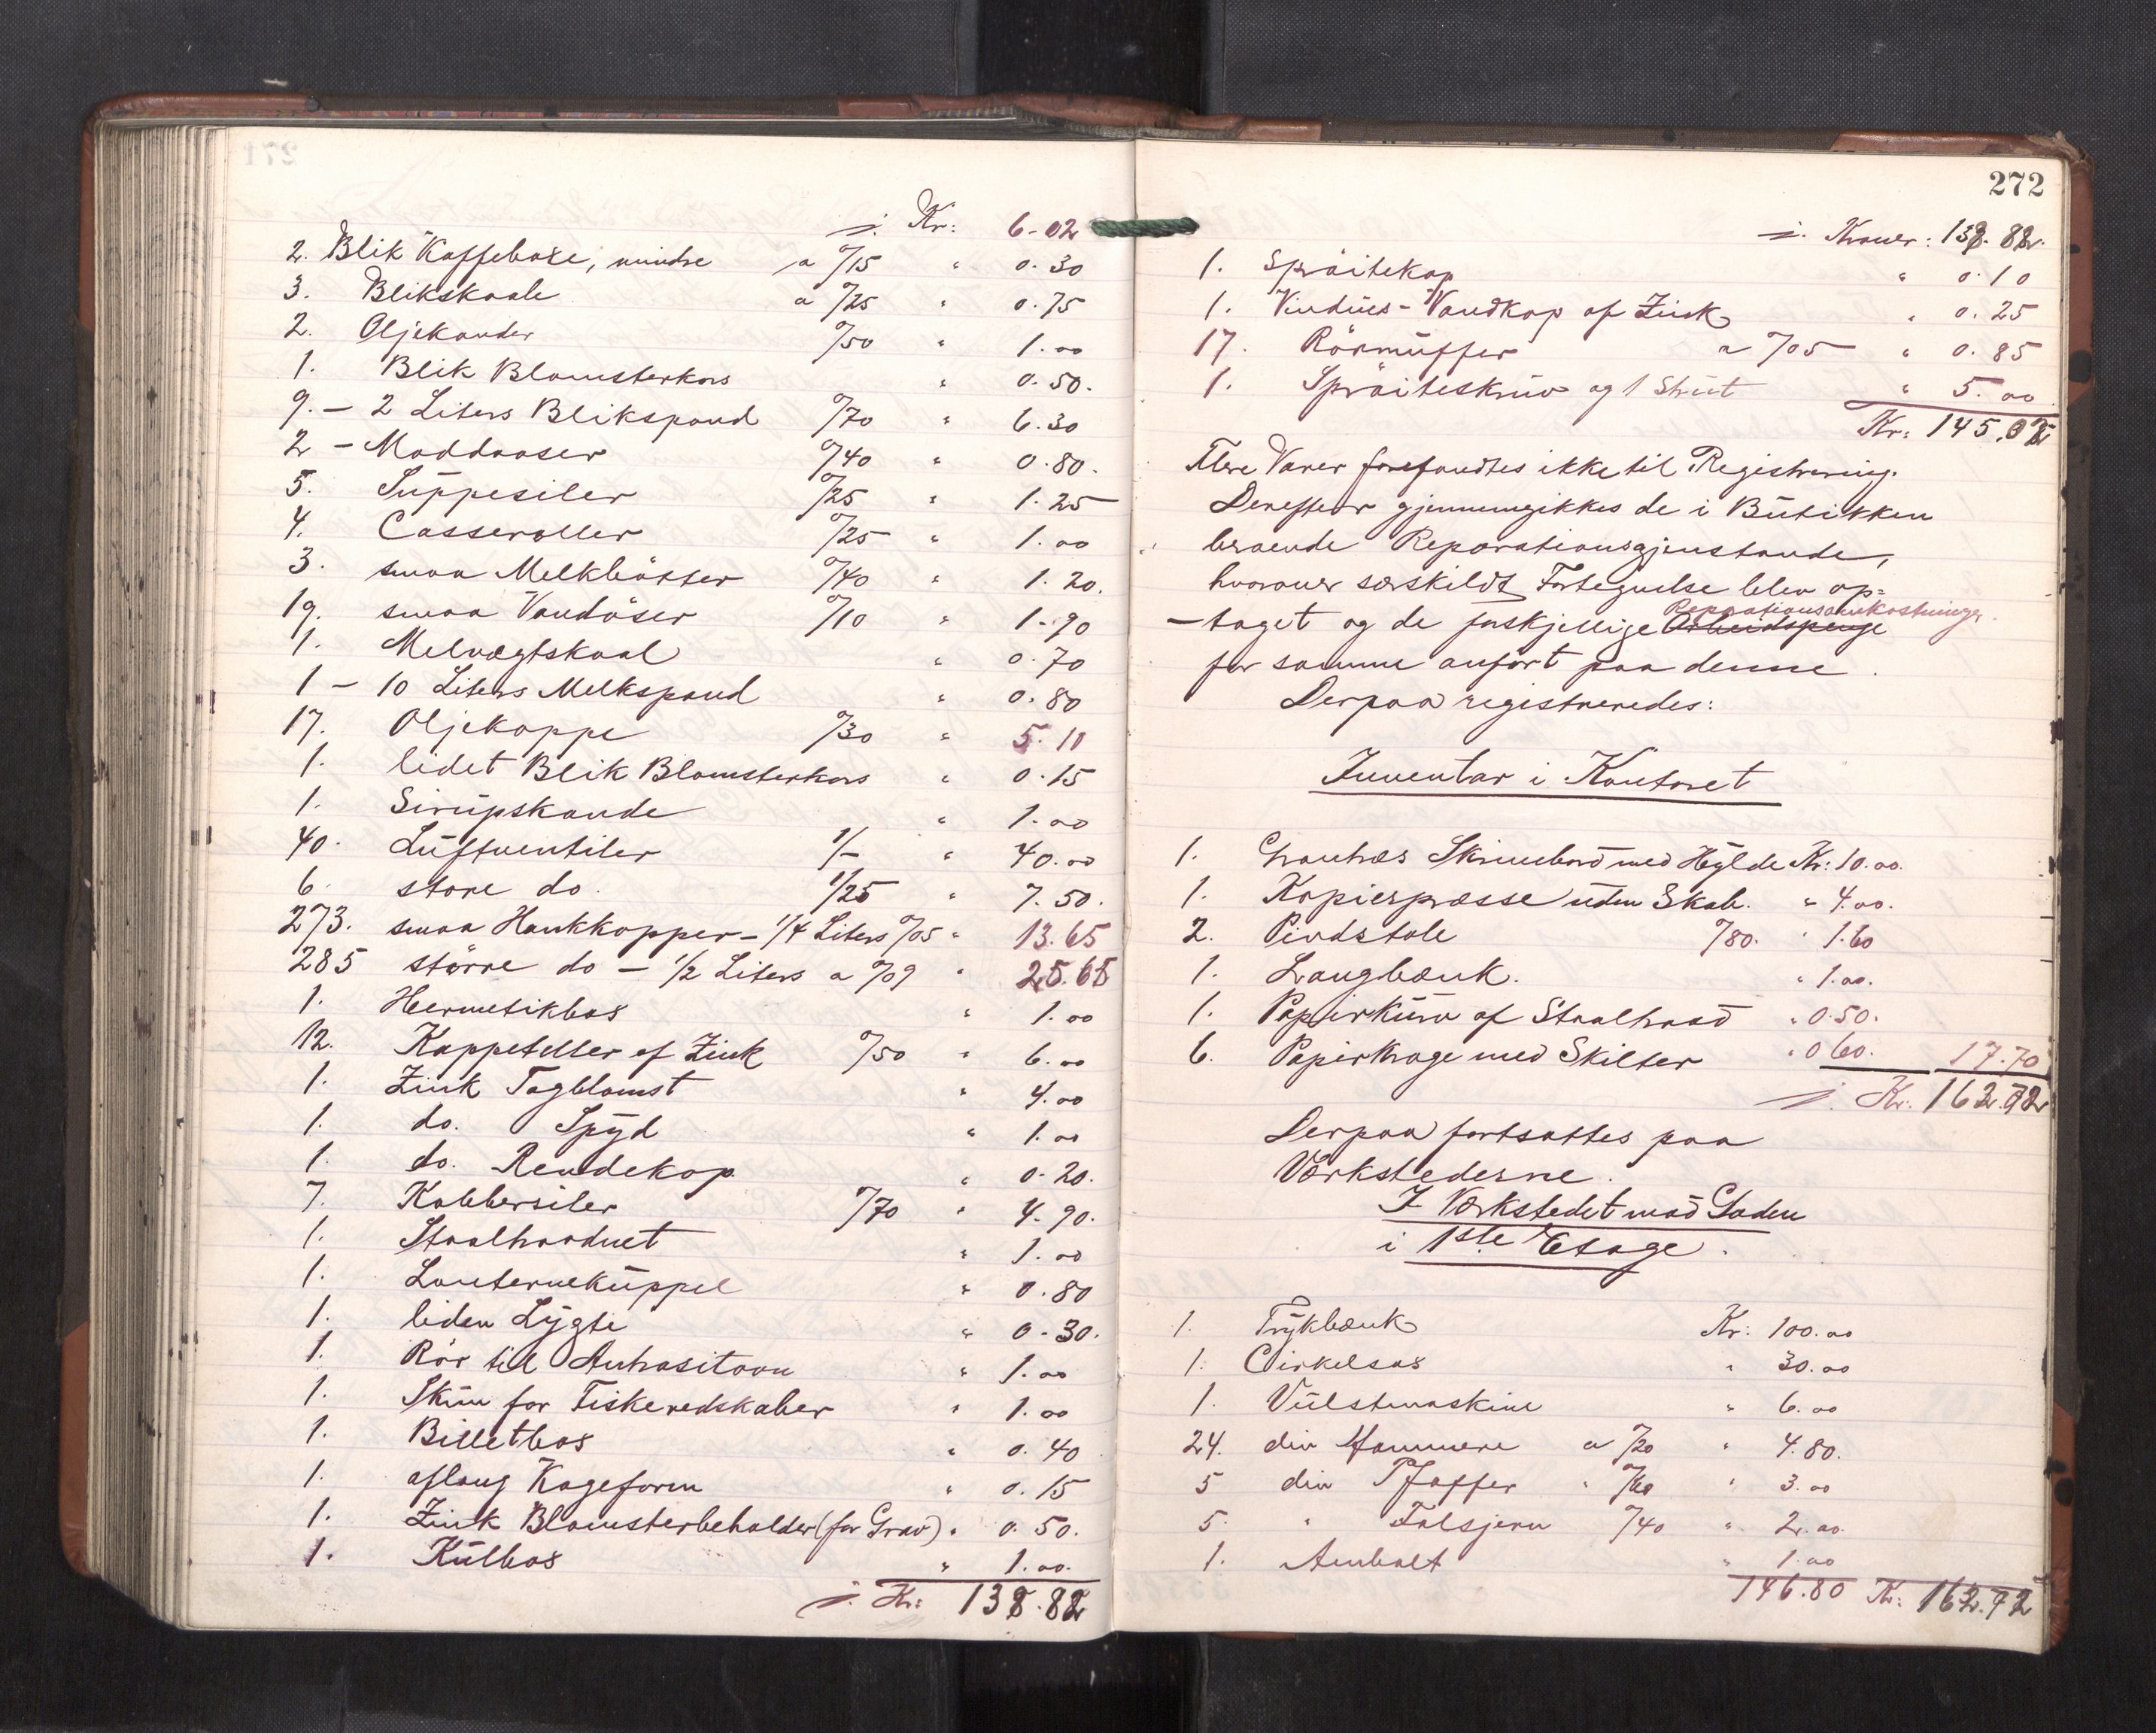 ÷ Kr: 6-02
2. Blik Kaffebøxe, mindre a 0/15 " 0.30
3. Blikskaale a 0/25 " 0.75
2. Oljekander 0/50 " 1.00
1. Blik Blomsterkors " 0.50.
9. – 2 Liters Blikspand 0/70 " 6.30
2 – Maddaaser 0/40 " 0.80.
5. Suppesiler 0/25 " 1.25
4. Casseroller 0/25 " 1.00
3. smaa Melkbøtter 0/40 " 1.20.
19. smaa Vandøser 0/10 " 1-90
1. Melvægtskaal " 0.70
1 – 10 Liters Melkspand " 0.80
17. Oljekoppe 0/30 " 5.10
1. lidet Blik Blomsterkors " 0.15
1. Sirupskande " 1.00
40. Luftventiler 1/- " 40.00
6. store do. 1/25 " 7.50.
273. smaa Hankkopper – 1/4 Liters 0/05 " 13.65
285 større do – 1/2 Liters a 0/09 " 25.65
1. Hermetikbox " 1.00
12. Kappeteller af Zink 0/50 " 6.00
1. Zink Tagblomst " 4.00
1. do. Spyd " 1.00
1. do. Rendekop " 0-20.
7. Kobbersiler 0/70 " 4.90.
1. Staaltraadnet " 1.00
1. Lanternekuppel " 0.80
1. liden Lygte " 0-30.
1. Rør til Antrasitovn " 1.00
1. Skrin for Fiskeredskaber " 1.00
1. Billetbox " 0.40
1. aflang Kageform " 0.15
1. Zink Blomsterbeholder (for Grav) " 0.50.
1. Kulbox " 1.00.
÷ Kr: 138.82
272
÷ Kroner: 138.82.
1. Sprøitekop " 0.10
1. Vindues-Vandkop af Zink " 0.25
17. Rørmuffer a 0/05 " 0.85
1. Sprøiteskruv og 1 Strut " 5.00
Kr: 145.02
Flere Varer forefandtes ikke til Registrering.
Derefter gjennemgikkes de i Butikken
beroende Reparationsgjenstande,
hvorover særskildt Fortegnelse blev op=
Reparationsomkostninger
–taget og de forskjellige Arbeidspenge
for samme anført paa denne.
Derpaa registreredes:
Inventar i Kontoret
1. Grantræs Skrivebord med Hylde Kr: 10.00.
1. Kopierpresse uden Skab. " 4.00.
2. Pindstole 0/80. " 1.60
1. Langbænk. " 1.00.
1. Papirkurv af Staaltraad " 0.50.
6. Papirkroge med Skilter " 0.60. 17.70
÷ Kr. 162.72
Derpaa fortsattes paa
Værkstederne.
I Værkstedet mod Gaden
i 1ste Etage.
1. Trykbænk Kr: 100.00
1. Cirkelsax " 30.00
1. Vulstmaskine " 6.00
24. div Hammere a 0/20 " 4.80.
5 div Pfaffer " 0/60 " 3.00
5. " Falsjern 0/40 " 2.00
1. Ambolt " 1.00
146.80 Kr: 162.72